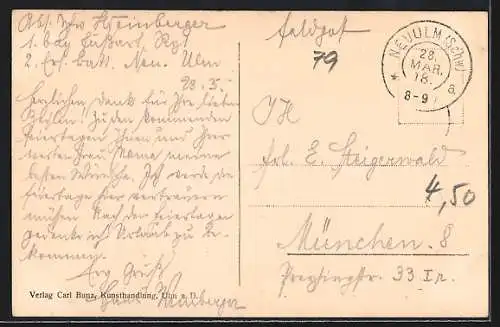 Abs. Hs. Steinberger
1. bay Fußart. Rgt
2. Ers. Batt. Neu. Ulm
28. 3.
Herzlichen Dank für Ihre lieben
Zu den kommenden
Feiertagen Ihnen und Ihrer
werten Frau Mama meine
besten Wünsche. Ich werde die
Feiertage hier
Nach den Feiertagen
gedenke ich Urlaub zu be-
kommen.
Erg. Grüße
Hans Steinberger
Verlag Carl Bunz, Kunsthandlung, Ulm a. D.
Feldpost
79
NEUULM (Schw)
28.
MAR.
18.
* a
8-9
IH
Frl. E. Steigerwald
4,50
München. 8
Preysingstr. 33 I r.